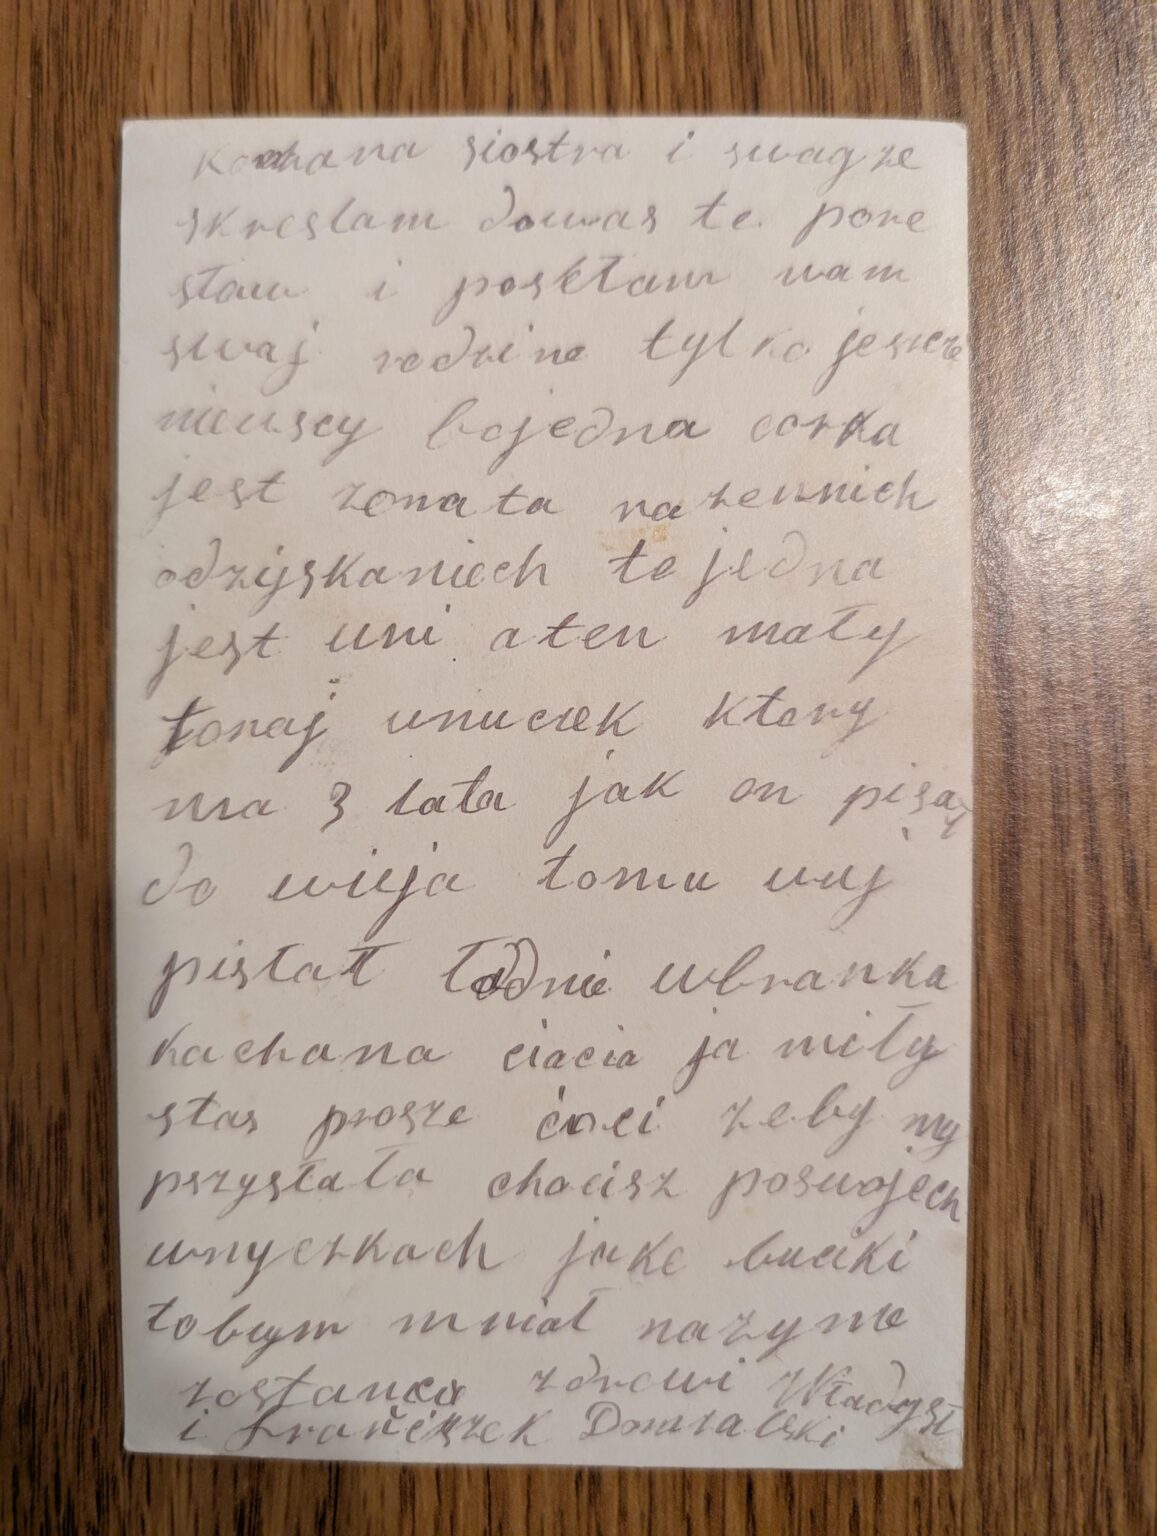 Kochana siostra i swagze
skreslam dowas te pore
słow i posełam wam
swaj rodzine tylko jescze
niewscy bojedna corka
jest zonata nazemnich
odzyskaniech te jedna
jest uni aten mały
toraj wnucek ktory
ma 3 lata jak on pisał
do wuja tomu wuj
pistał ładnie ubranka
kachana ciacia ja miły
stas prosze cioci zeby my
pszystała chocisz poswojech
wnyczkach jake buciki
tobym mniał nazyme
zostanca zdrowi Władysł
i Franciszek Domzalski